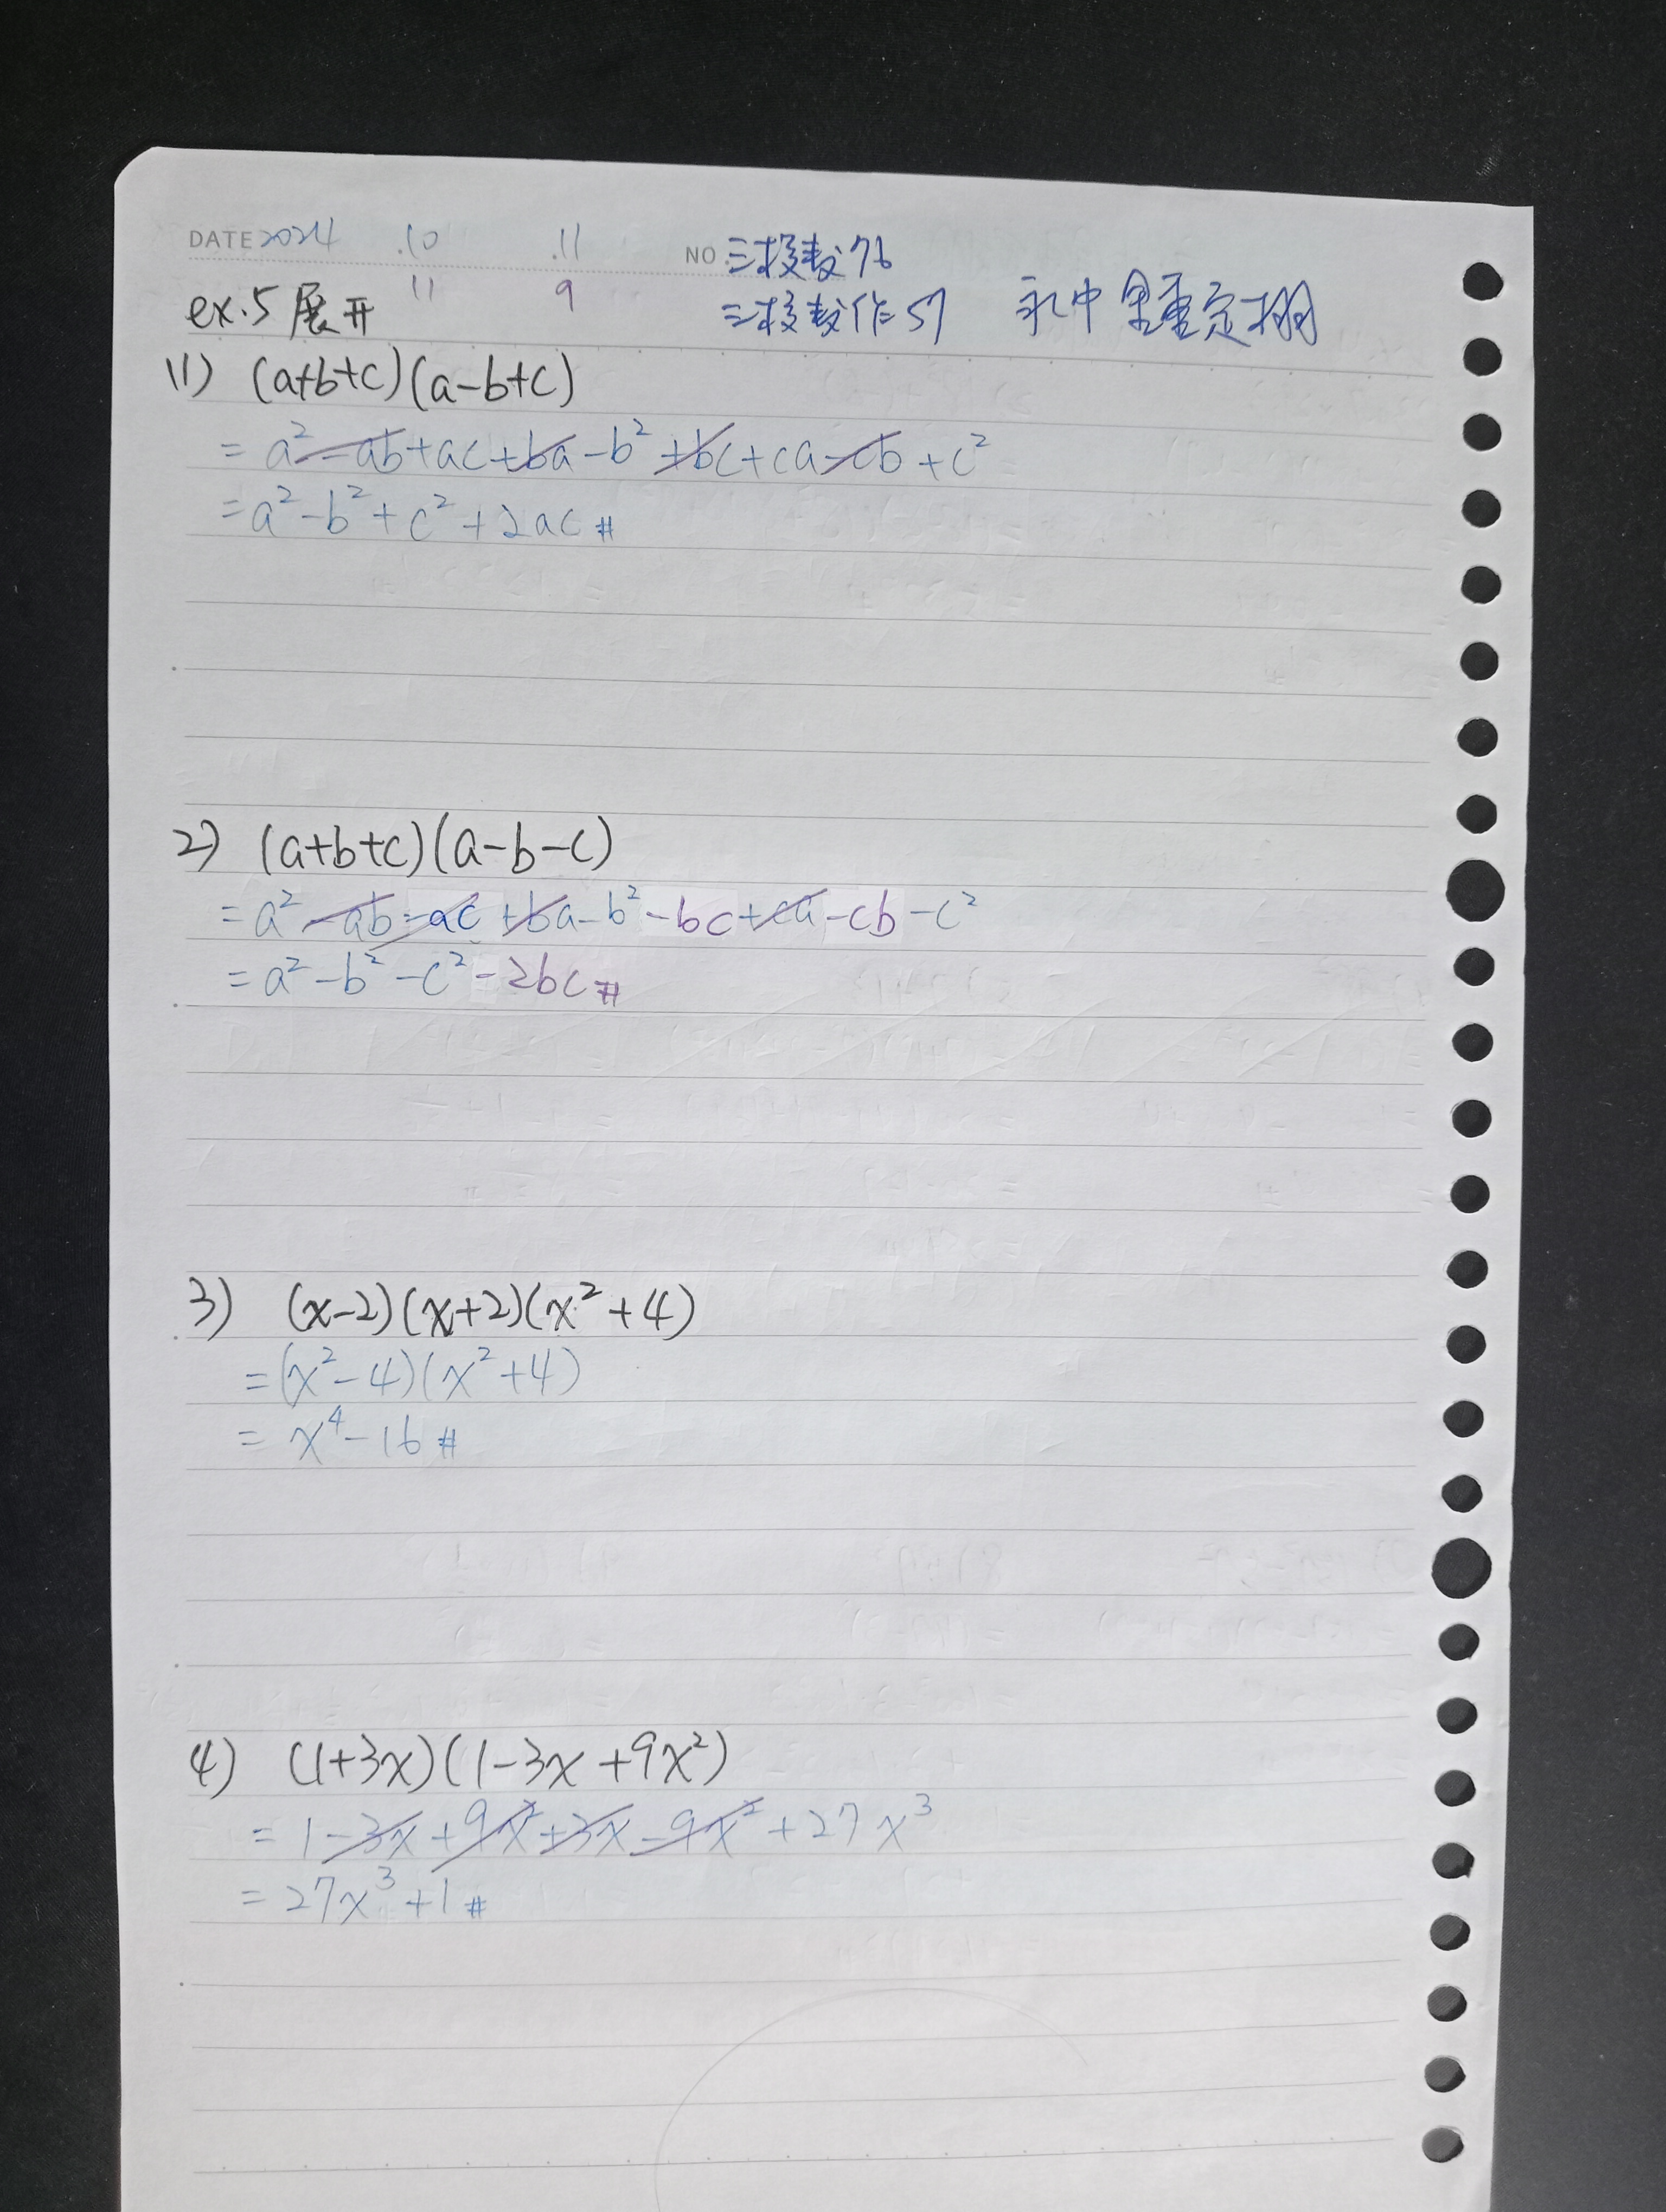 DATE 2024 .10 .11 NO. 三技數76
11 9
ex.5 展开 三技數作57
11) (a+b+c)(a-b+c)
= a² -ab+ac+ba-b²+bc+ca-cb+c²
= a²-b²+c²+2ac #
2) (a+b+c)(a-b-c)
= a² -ab-ac+ba-b²-bc+ca-cb-c²
= a²-b²-c²-2bc #
3) (x-2)(x+2)(x²+4)
= (x²-4)(x²+4)
= x⁴-16 #
4) (1+3x)(1-3x+9x²)
= 1-3x+9x²+3x-9x²+27x³
= 27x³+1 #